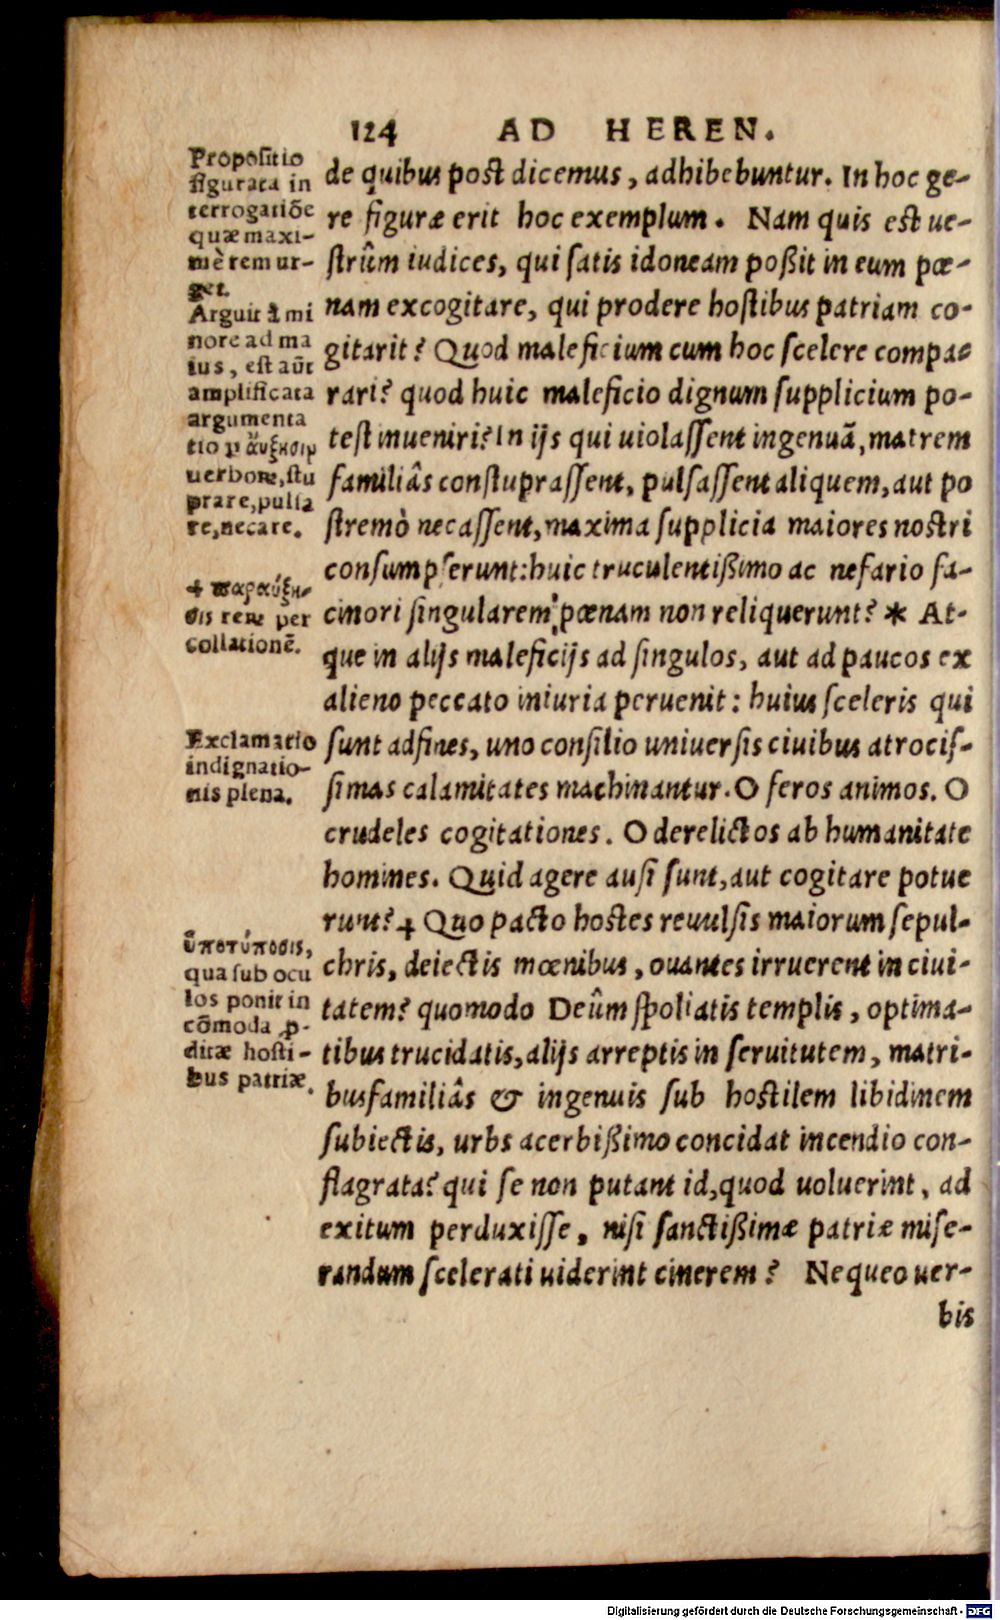 124 AD HEREN.
Propositio
figurata in
terrogatiõe
quæ maxi-
mè rem ur-
get.
Arguit à mi
nore ad ma
ius, est aũt
amplificata
argumenta
tio p αὔξησιμ
uerborꝝ, stu
prare, pulsa
re, necare.
+ παραύξη-
σις rerꝝ per
collationẽ.
Exclamatio
indignatio-
nis plena.
ὑποτύποσις,
qua sub ocu
los ponit in
cõmoda ꝓ-
ditæ hosti-
bus patriæ.
de quibus post dicemus, adhibebuntur. In hoc ge-
re figuræ erit hoc exemplum. Nam quis est ue-
strûm iudices, qui satis idoneam poßit in eum pœ-
nam excogitare, qui prodere hostibus patriam co-
gitarit? Quod maleficium cum hoc scelere compa-
rari? quod huic maleficio dignum supplicium po-
test inueniri? In ijs qui uiolassent ingenuã, matrem
familiâs constuprassent, pulsassent aliquem, aut po
stremò necassent, maxima supplicia maiores nostri
consumpserunt: huic truculentißimo ac nefario fa-
cinori singularem pœnam non reliquerunt? * At-
que in alijs maleficijs ad singulos, aut ad paucos ex
alieno peccato iniuria peruenit: huius sceleris qui
sunt adfines, uno consilio uniuersis ciuibus atrocis-
simas calamitates machinantur. O feros animos. O
crudeles cogitationes. O derelictos ab humanitate
homines. Quid agere ausi sunt, aut cogitare potue
runt? + Quo pacto hostes reuulsis maiorum sepul-
chris, deiectis mœnibus, ouantes irruerent in ciui-
tatem? quomodo Deûm spoliatis templis, optima-
tibus trucidatis, alijs arreptis in seruitutem, matri-
busfamiliâs & ingenuis sub hostilem libidinem
subiectis, urbs acerbißimo concidat incendio con-
flagrata? qui se non putant id, quod uoluerint, ad
exitum perduxisse, nisi sanctißimæ patriæ mise-
randum scelerati uiderint cinerem? Nequeo uer-
bis
Digitalisierung gefördert durch die Deutsche Forschungsgemeinschaft - DFG